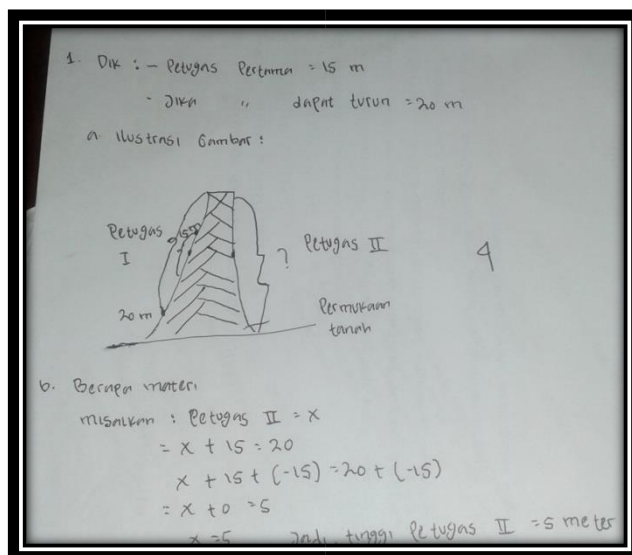 1. Dik : - Petugas Pertama = 15 m
- Jika " dapat turun = 20 m
a. Ilustrasi Gambar :
Petugas I
15
? Petugas II
4
20 m
Permukaan tanah
b. Berapa materi
misalkan : Petugas II = x
= x + 15 = 20
x + 15 + (-15) = 20 + (-15)
= x + 0 = 5
x = 5 Jadi tinggi Petugas II = 5 meter